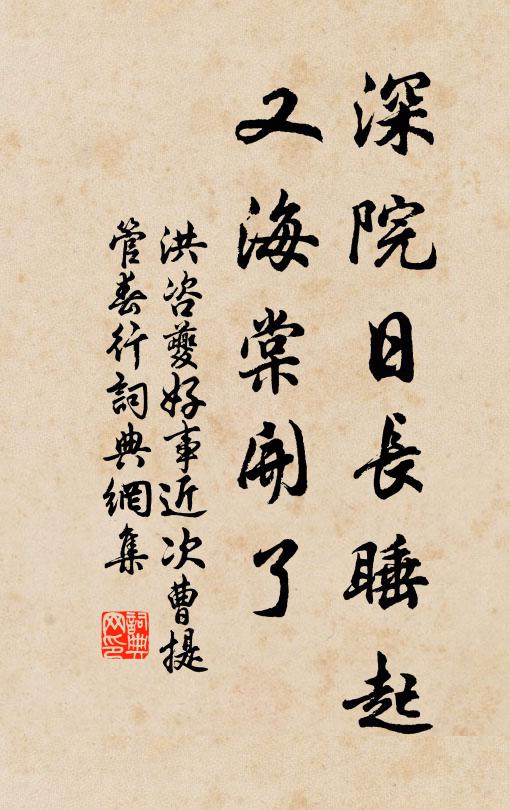 深院日長睡起
又海棠開了
洪咨夔好事近次曹提
管春行詞典網集
詞典
网印